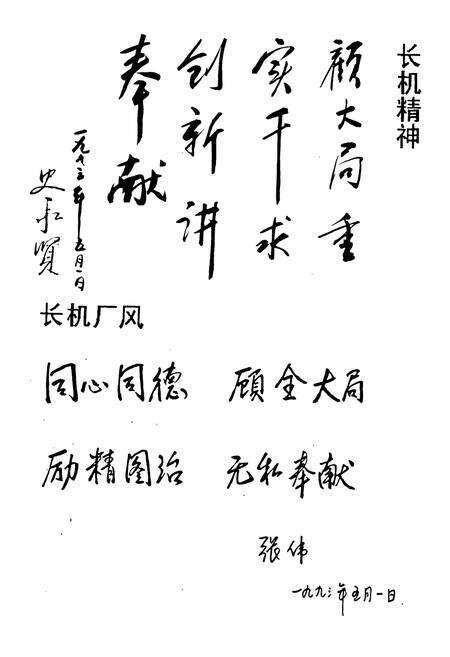 长机精神
顾大局重
实干求
创新讲
奉献
一九九三年五月一日
史 贤
长机厂风
同心同德 顾全大局
励精图治 无私奉献
张伟
一九九三年五月一日